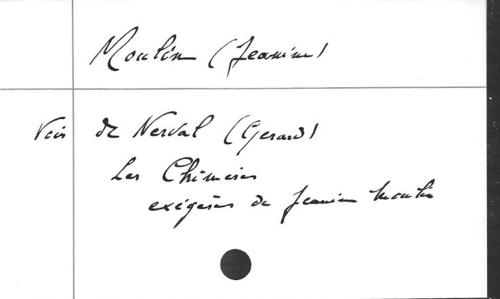 Moulin (Jeanine)
Voir de Nerval (Gerard)
Les Chimères
exégèses de Jeanine Moulin